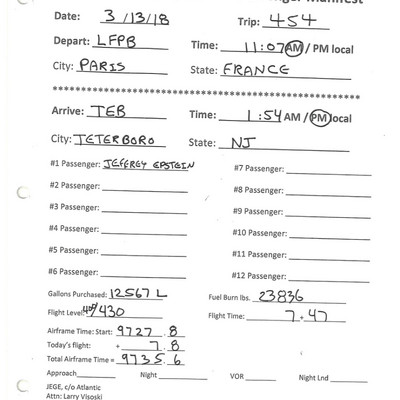 Passenger Manifest
Date: 3/13/18 Trip: 454
Depart: LFPB Time: 11:07 AM / PM local
City: PARIS State: FRANCE
********************************************
Arrive: TEB Time: 1:54 AM / PM local
City: TETERBORO State: NJ
#1 Passenger: JEFFREY EPSTEIN #7 Passenger:
#2 Passenger: #8 Passenger:
#3 Passenger: #9 Passenger:
#4 Passenger: #10 Passenger:
#5 Passenger: #11 Passenger:
#6 Passenger: #12 Passenger:
Gallons Purchased: 12567 L Fuel Burn lbs. 23836
Flight Level: 400/430 Flight Time: 7 + 47
Airframe Time: Start: 9727 . 8
Today's flight: + 7 . 8
Total Airframe Time = 9735 . 6
Approach Night VOR Night Lnd
JEGE, c/o Atlantic
Attn: Larry Visoski